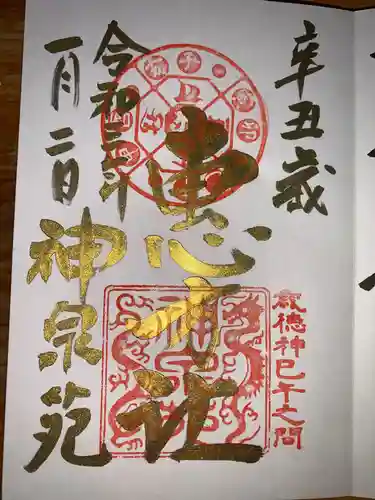 辛丑歳
歳徳神巳午之間
恵方社
令和三年
一月二日
神泉苑